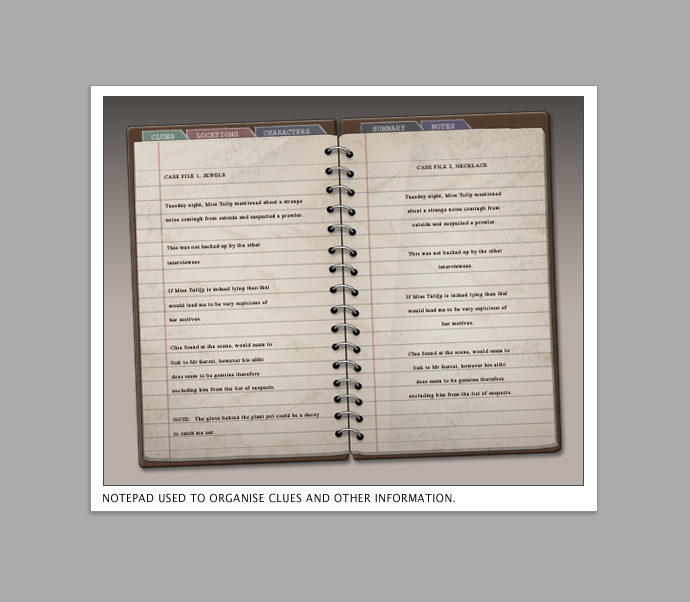 CLUES
LOCATIONS
CHARACTERS
SUMMARY
NOTES
CASE FILE 1, JEWELS
Tuesday night, Miss Tulip mentioned about a strange
noise comingh from outside and suspected a prowler.
This was not backed up by the other
interviewees.
If Miss Tulip is indeed lying then that
would lead me to be very supicious of
her motives.
Clue found at the scene, would seem to
link to Mr Barrat, however his alibi
does seem to be genuine therefore
excluding him from the list of suspects.
NOTE: The glove behind the plant pot could be a decoy
to catch me out.
CASE FILE 2, NECKLACE
Tuesday night, Miss Tulip mentioned
about a strange noise comingh from
outside and suspected a prowler.
This was not backed up by the other
interviewees.
If Miss Tulip is indeed lying then that
would lead me to be very supicious of
her motives.
Clue found at the scene, would seem to
link to Mr Barrat, however his alibi
does seem to be genuine therefore
excluding him from the list of suspects.
NOTEPAD USED TO ORGANISE CLUES AND OTHER INFORMATION.